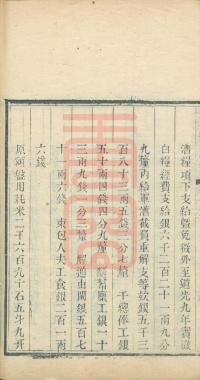 漕糧項下支給蠲免緩外至道光九年實徵
白糧經費支給銀六千二百二十一兩九分
九釐內給軍漕截貴重解支等款銀五千三
百八十三兩五錢二分七釐　千總俸工銀
五十兩四錢四分九釐　幫廳工銀一十
三兩九錢一分三釐　解道由閘銀五百七
十一兩六錢　束包人夫工食銀二百一兩
六錢
原額盤用耗米二千六百九十石五斗九升